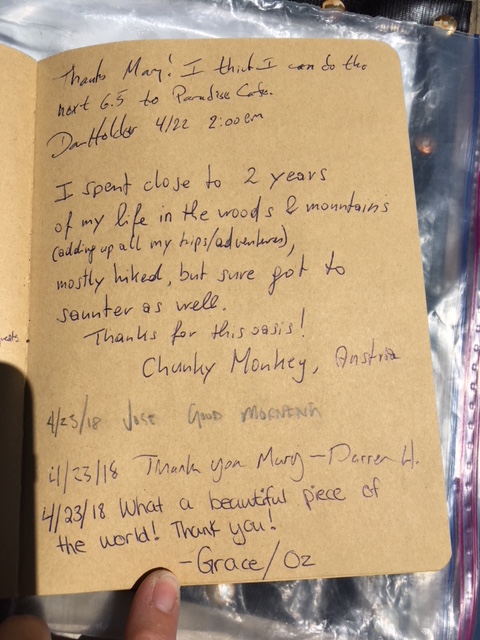 Thanks Mary! I think I can do the
next 6.5 to Paradise Cafe.
Dan Holder 4/22 2:00em
I spent close to 2 years
of my life in the woods & mountains
(adding up all my trips/adventures),
mostly hiked, but sure got to
saunter as well.
Thanks for this oasis!
Chunky Monkey, Austria
4/23/18 JOSE GOOD MORNING
4/23/18 Thank you Mary – Darren H.
4/23/18 What a beautiful piece of
the world! Thank you!
- Grace/Oz